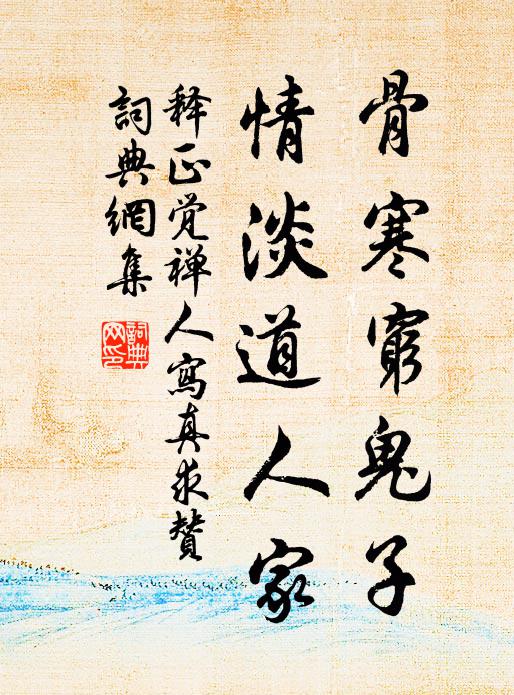 骨寒窮鬼子
情淡道人家
释正觉禅人寫真求贊
詞典網集
詞典
网印